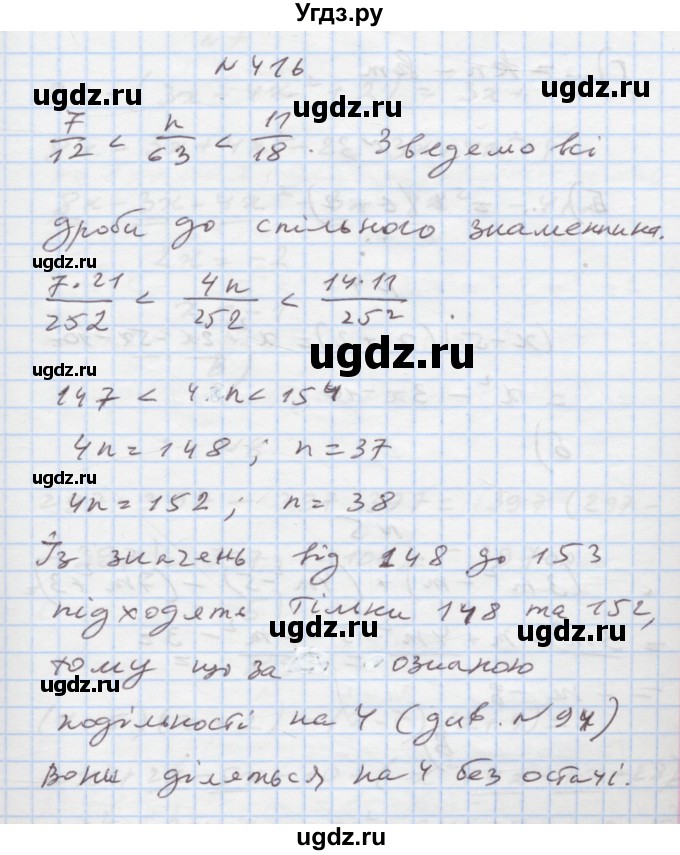 Угдз.ру
№ 416
7/12 < n/63 < 11/18 . Зведемо всі
дроби до спільного знаменника.
7·21/252 < 4n/252 < 14·11/252 .
147 < 4·n < 154
4n = 148 ; n = 37
4n = 152 ; n = 38
Із значень від 148 до 153
підходять тільки 148 та 152,
тому що за ознакою
подільності на 4 (див. № 94)
вони діляться на 4 без остачі.
ugdz.ru
ugdz.ru
ugdz.ru
ugdz.ru
ugdz.ru
ugdz.ru
ugdz.ru
ugdz.ru
ugdz.ru
ugdz.ru
ugdz.ru
ugdz.ru
ugdz.ru